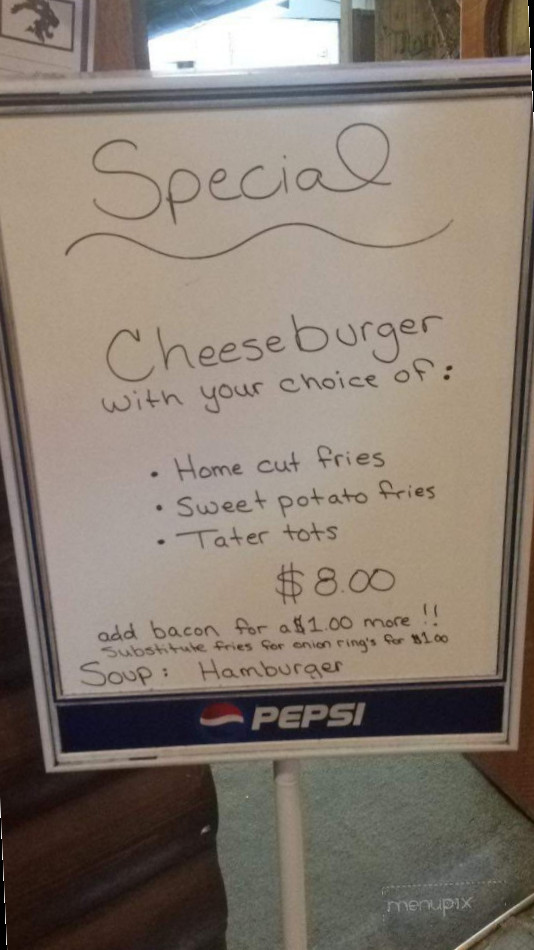 Special
Cheeseburger
with your choice of:
• Home cut fries
• Sweet potato fries
• Tater tots
$8.00
add bacon for a $1.00 more !!
Substitute fries for onion ring's for $1.00
Soup: Hamburger
PEPSI
menupix